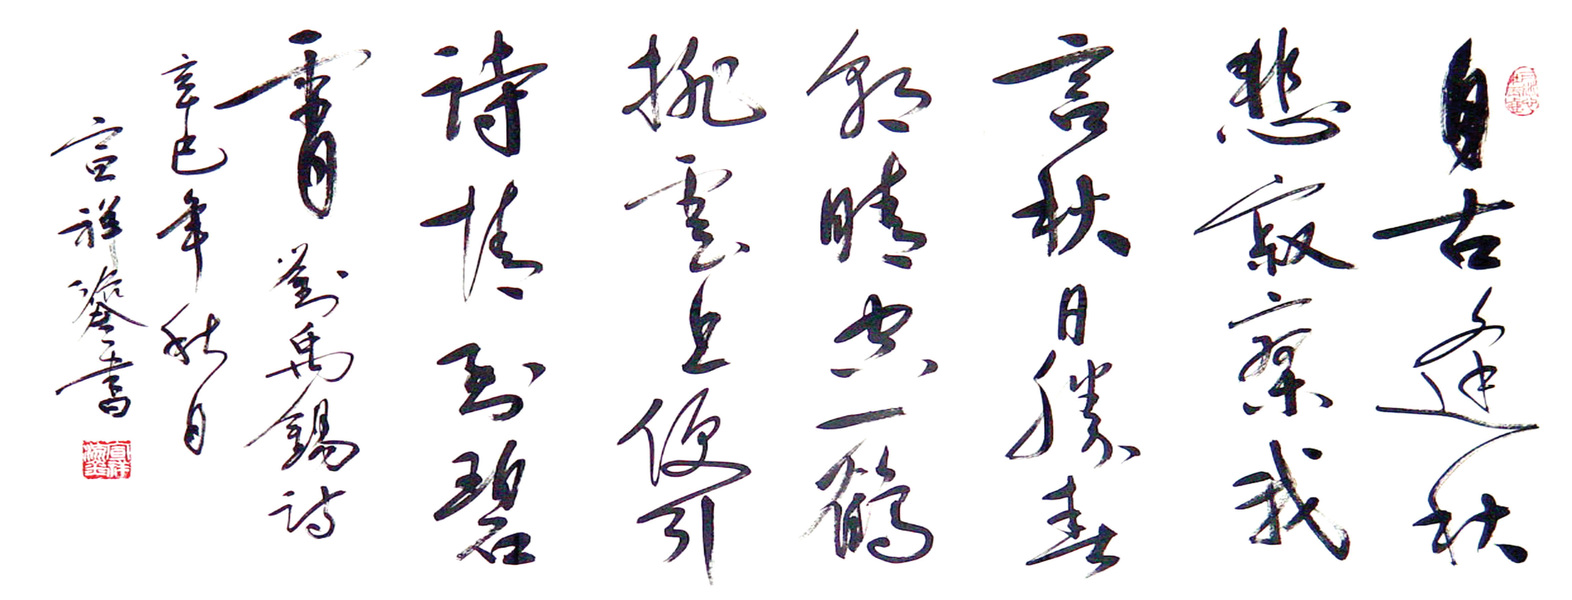 自古逢秋
悲寂寥我
言秋日勝春
朝晴空一鶴
排雲上便引
詩情到碧
霄劉禹錫詩
辛巳年秋月
宣祥鎏書